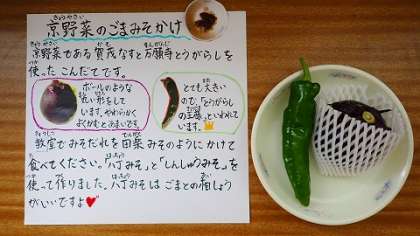 きょうやさい
京野菜のごまみそかけ
きょうやさい かも まんがんじ
京野菜である賀茂なすと万願寺とうがらしを
使ったこんだてです。
ボールのような
丸い形をして
います。やわらかく
よくかむとあまいです。
とても大きい
ので、「とうがらし
の王様」といわれて
います。
きょうしつ でんがく
教室でみそだれを田楽みそのようにかけて
食べてください。「八丁みそ」と「しんしゅうみそ」を
使って作りました。八丁みそはごまとの相しょう
がいいですよ